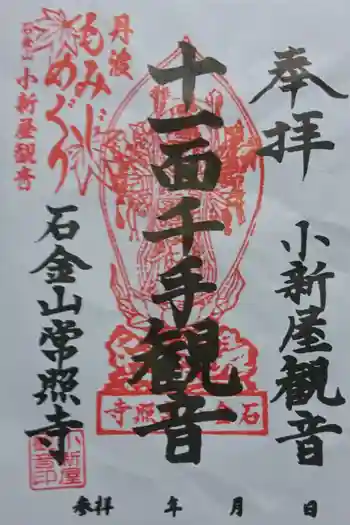 奉拝
小新屋観音
十一面千手観音
丹波
もみじ
めぐり
石金山
小新屋観音
石金山常照寺
小新屋
観音印
参拝 年 月 日